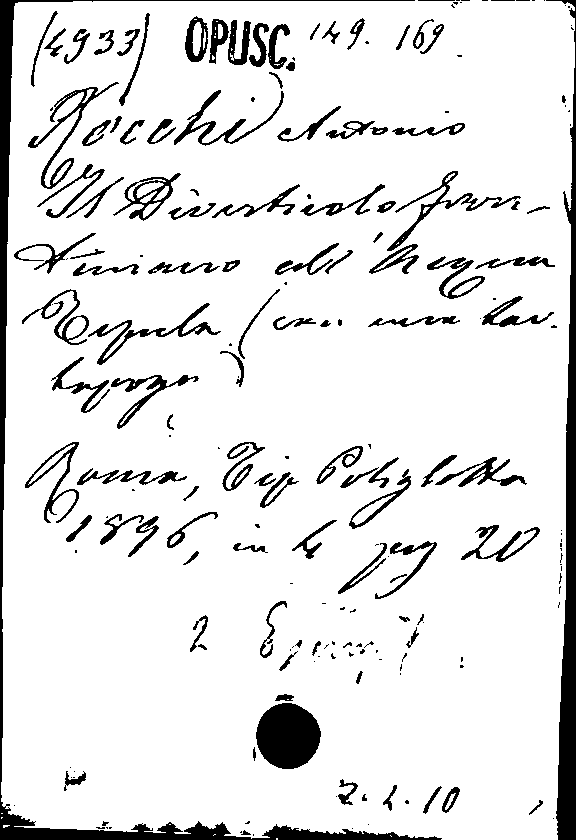 (4933) OPUSC. 149. 169.
Rocchi Antonio
Il Diverticolo Fron-
tiniano all'Acqua
Tepula (con una tav.
topogr.)
Roma, Tip Poliglotta
1896, in 4 pag 20
2 Esemp.
2.2.10